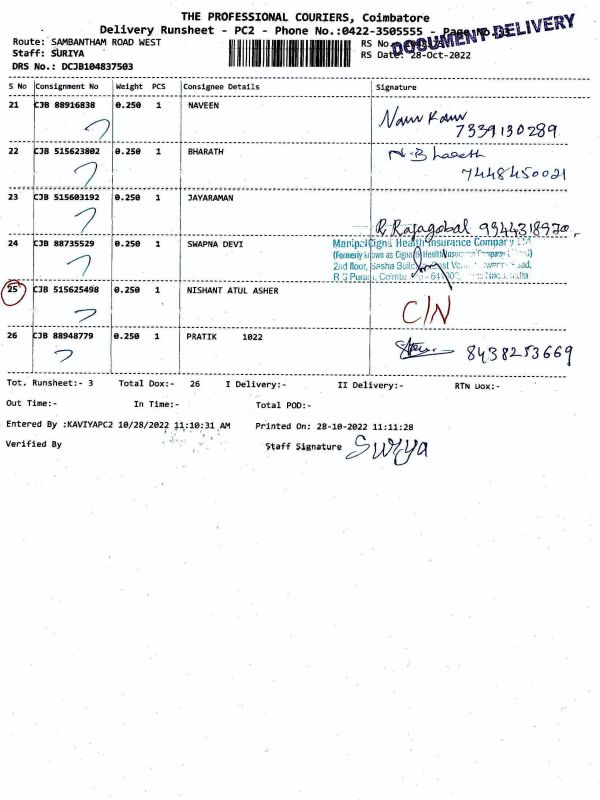 THE PROFESSIONAL COURIERS, Coimbatore
Delivery Runsheet - PC2 - Phone No.:0422-3505555 - Page No.
DOCUMENT DELIVERY
Route: SAMBANTHAM ROAD WEST
RS No.
Staff: SURIYA
RS Date: 28-Oct-2022
DRS No.: DCJB104837503
S No Consignment No Weight PCS Consignee Details Signature
21 CJB 88916838 0.250 1 NAVEEN
7339130289
22 CJB 515623802 0.250 1 BHARATH N. Bharath
7448450021
23 CJB 515603192 0.250 1 JAYARAMAN
R Rajagobal 9944318920.
24 CJB 88735529 0.250 1 SWAPNA DEVI
ManipalCigna Health Insurance Company
(Formerly known as Cigna Health Insurance Company
2nd floor, Sasha
R S Puram, Coimbatore
25 CJB 515625498 0.250 1 NISHANT ATUL ASHER
C/N
26 CJB 88948779 0.250 1 PRATIK 1022
8438253669
Tot. Runsheet:- 3 Total Dox:- 26 I Delivery:- II Delivery:- RTN Dox:-
Out Time:- In Time:- Total POD:-
Entered By :KAVIYAPC2 10/28/2022 11:10:31 AM Printed On: 28-10-2022 11:11:28
Verified By Staff Signature Surya